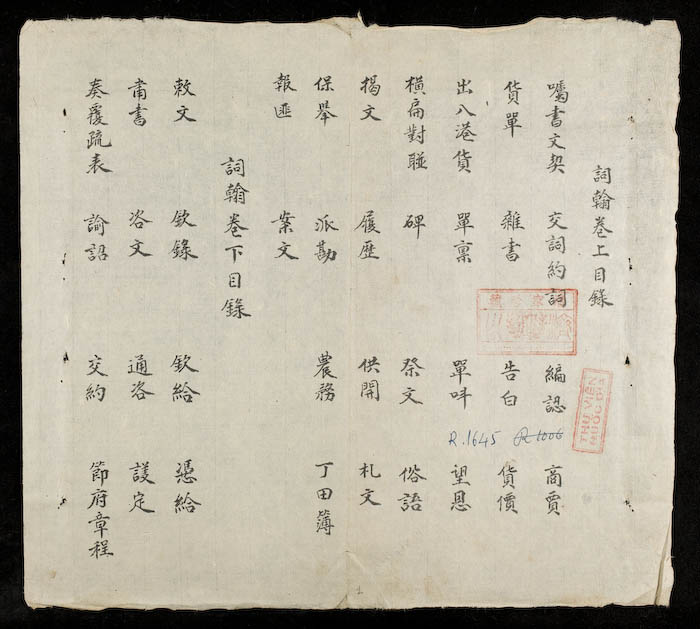 詞翰卷上目錄
囑書文契 交詞約詞 編認 商賈
貨單 雜書 告白 貨價
出入港貨 單禀 單呌 望恩
橫扁對聯 碑 祭文 俗語
揭文 履歷 供開 札文
保舉 派勘 農務 丁田簿
報匪 案文
詞翰卷下目錄
敕文 欽錄 欽給 憑給
肅書 咨文 通咨 護定
奏覆疏表 諭詔 交約 節府章程
THƯ VIỆN
QUỐC GIA
R.1645 R 1006
1